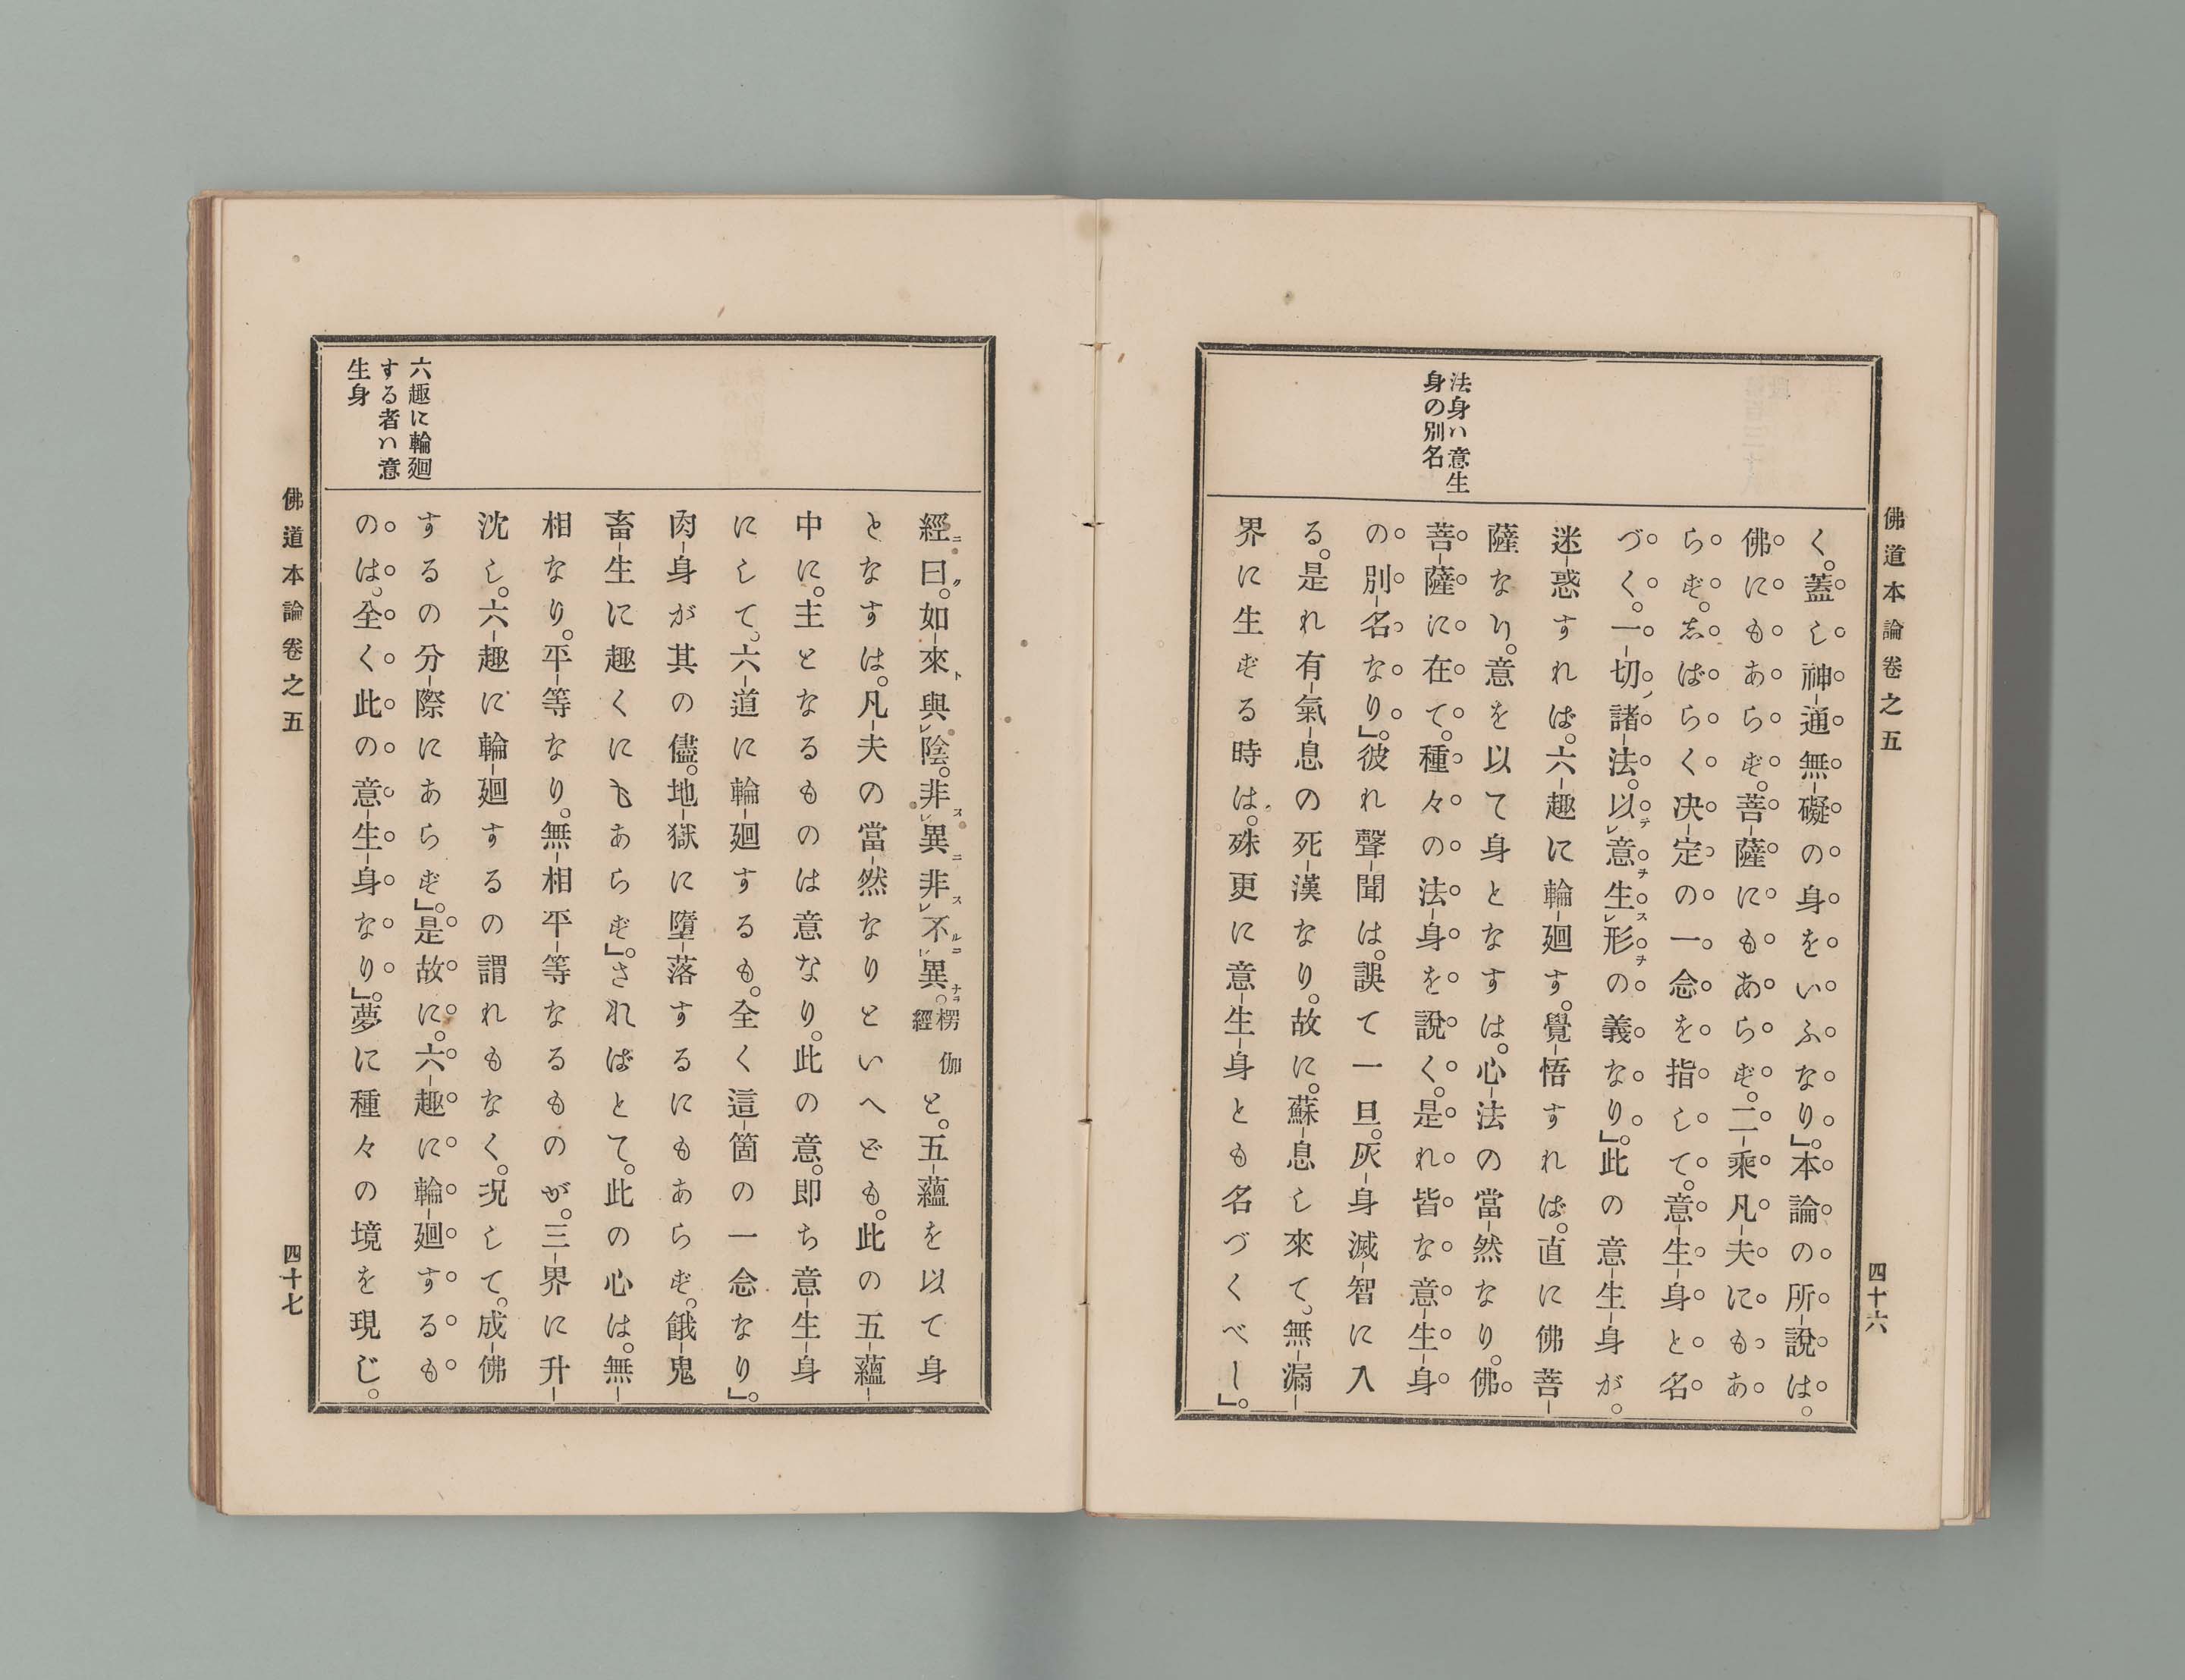 佛道本論卷之五
四十六
法身ハ意生
身の別名
く。蓋し神通無礙の身をいふなり」。本論の所說は。
佛にもあらず。菩薩にもあらず。二乘凡夫にもあ
らず。志ばらく决定の一念を指して。意生身と名
づく。一切ノ諸法。以テ㆑意ヲ生ス㆑形ヲの義なり」。此の意生身が。
迷惑すれば。六趣に輪廻す。覺悟すれば。直に佛菩
薩なり。意を以て身となすは。心法の當然なり。佛
菩薩に在て。種々の法身を說く。是れ皆な意生身
の別名なり」。彼れ聲聞は。誤て一旦。灰身滅智に入
る。是れ有氣息の死漢なり。故に。蘇息し來て。無漏
界に生ずる時は。殊更に意生身とも名づくべし」。
經ニ曰ク。如來ト與㆑陰。非ス㆑異ニ非ス㆑不ルニ㆑異ナラ。楞伽經と。五蘊を以て身
となすは。凡夫の當然なりといへども。此の五蘊
中に。主となるものは意なり。此の意。即ち意生身
にして。六道に輪廻するも。全く這箇の一念なり」。
肉身が其の儘。地獄に墮落するにもあらず。餓鬼
畜生に趣くにもあらず」。さればとて。此の心は。無
相なり。平等なり。無相平等なるものが。三界に升
沈し。六趣に輪廻するの謂れもなく。况して。成佛
するの分際にあらず」。是故に。六趣に輪廻するも
のは。全く此の意生身なり」。夢に種々の境を現じ。
六趣に輪廻
する者ハ意
生身
佛道本論卷之五
四十七